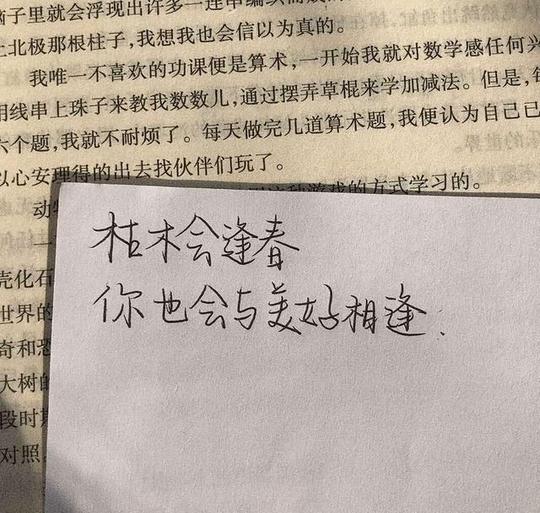 脑子里就会浮现出许多一连串编织而成
上北极那根柱子，我想我也会信以为真的。
我唯一不喜欢的功课便是算术，一开始我就对数学感任何兴
用线串上珠子来教我数数儿，通过摆弄草棍来学加减法。但是，每
六个题，我就不耐烦了。每天做完几道算术题，我便认为自己已
以心安理得的出去找伙伴们玩了。
动 游戏的方式学习的。
一
壳化石
世界的
奇和恐
大树的
段时期
对照，
枯木会逢春
你也会与美好相逢.